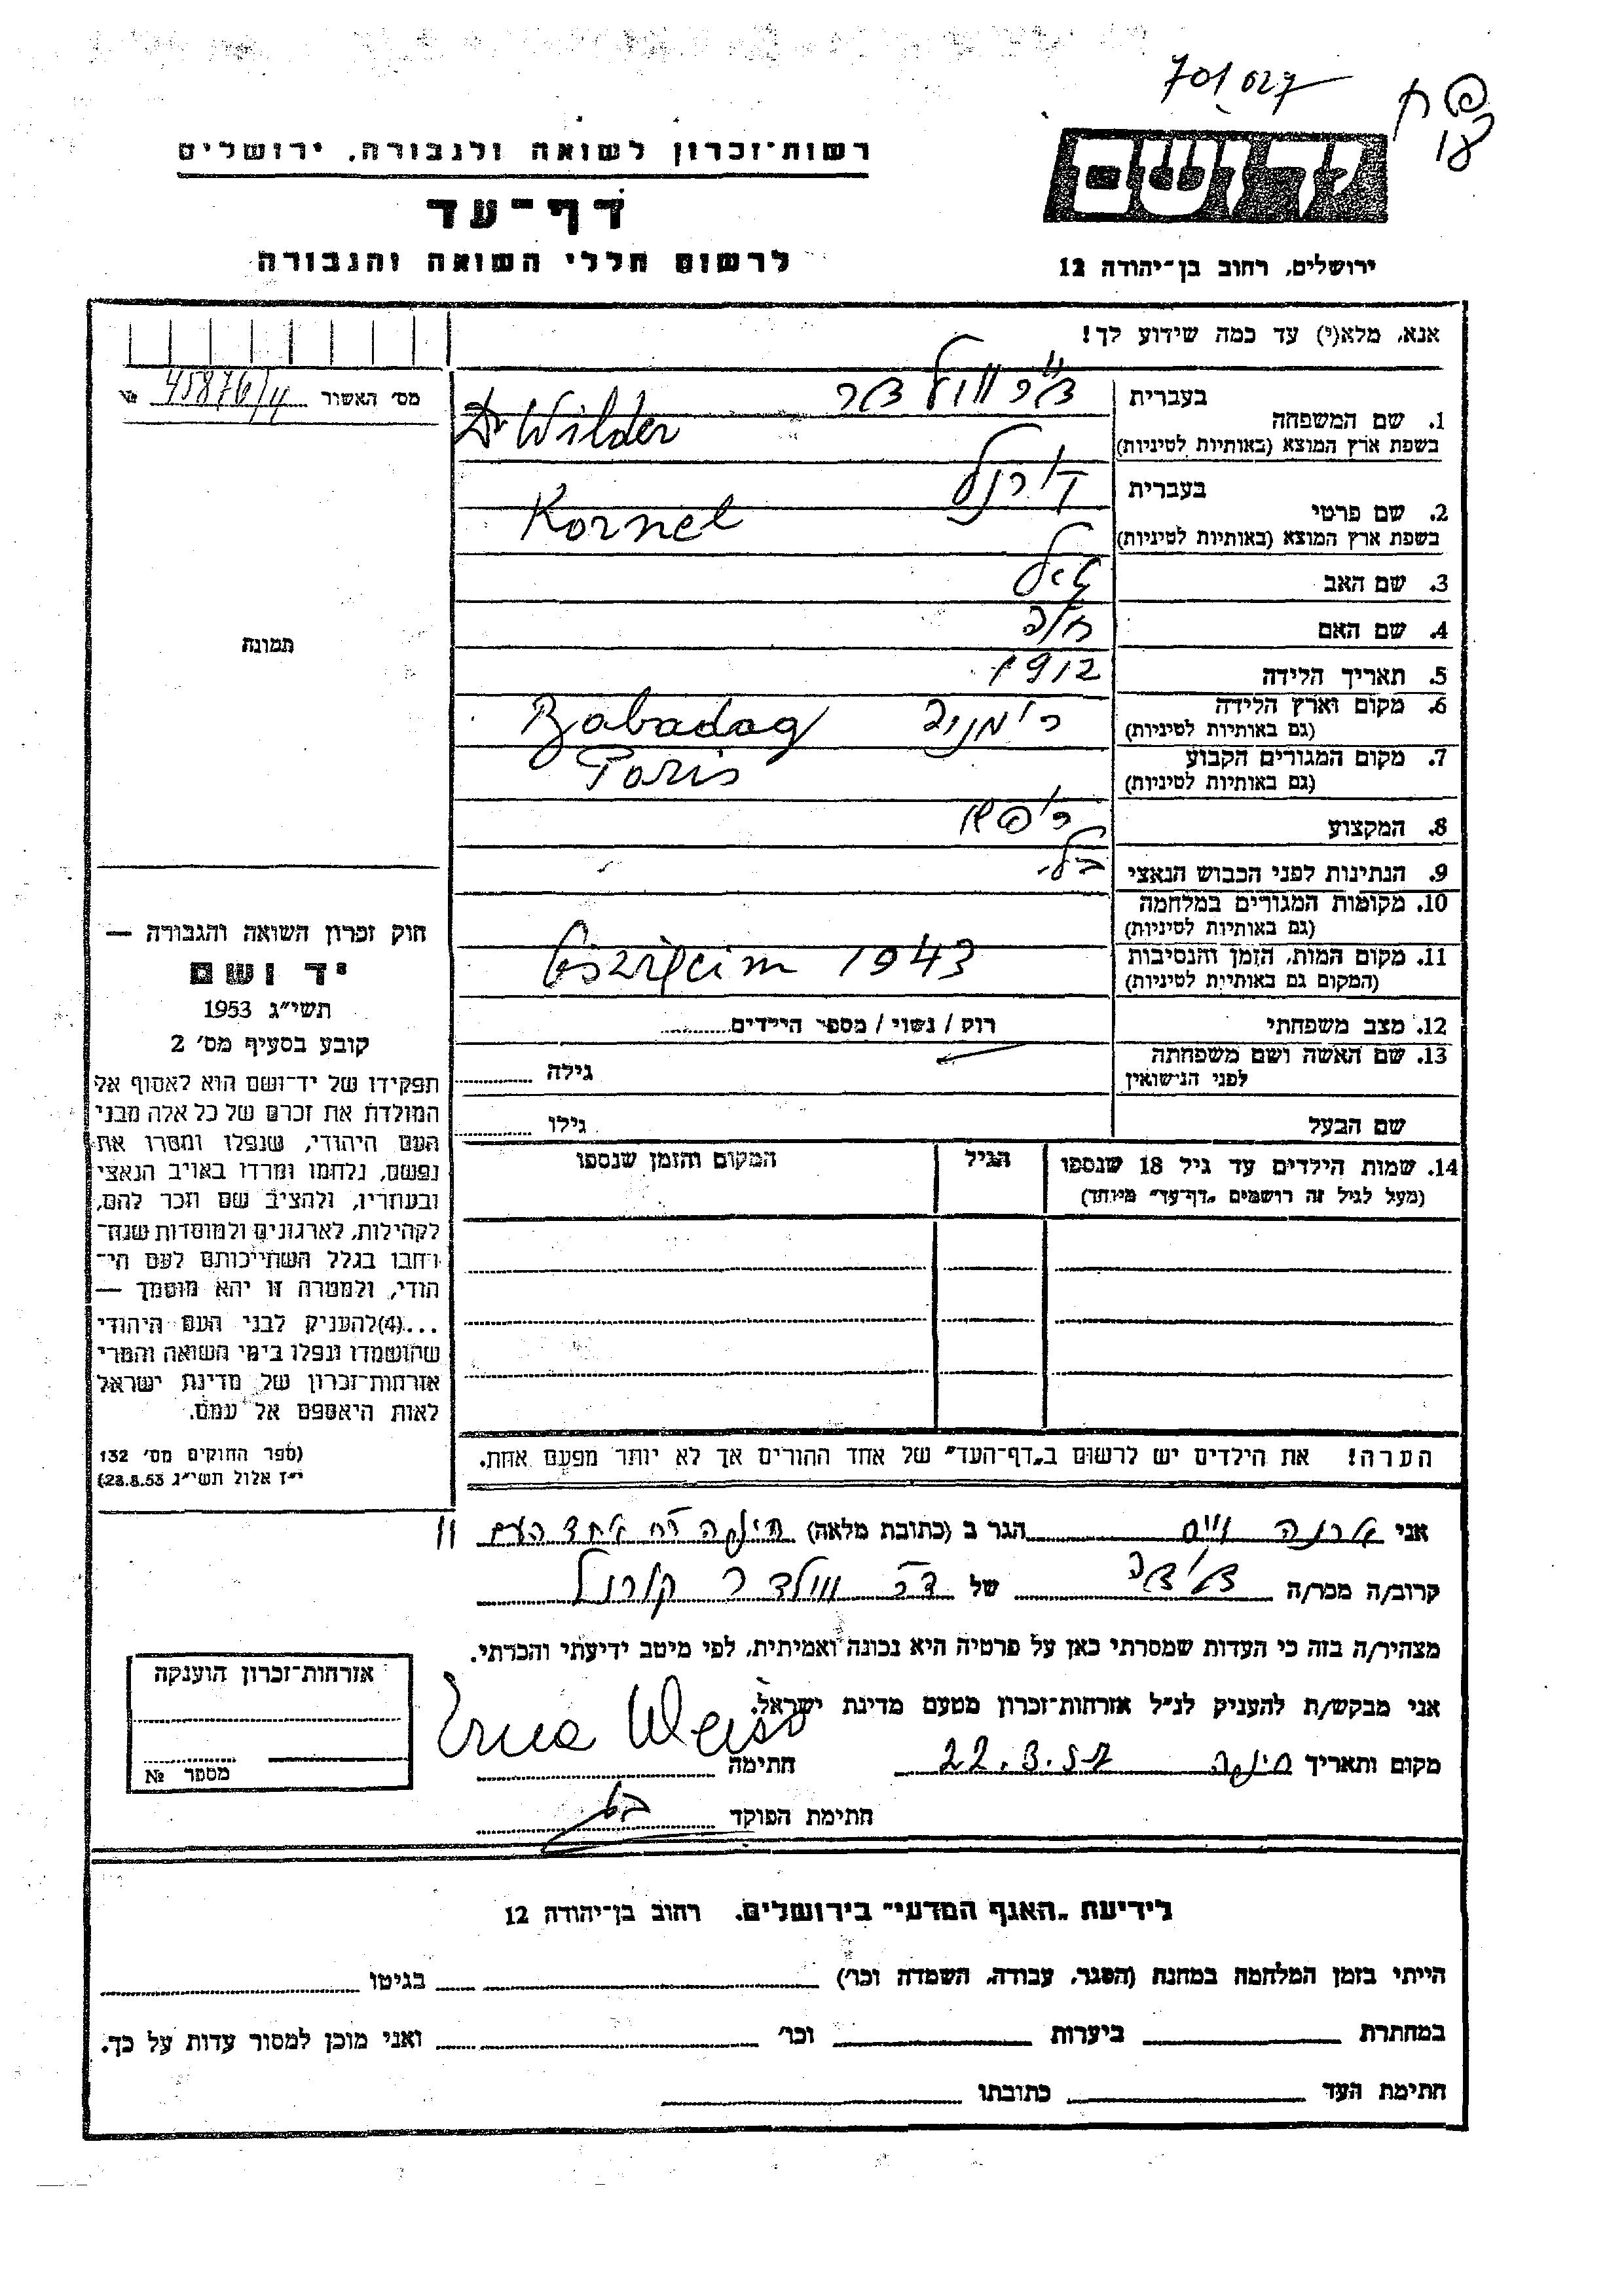 701 027
רשות־זכרון לשואה ולגבורה, ירושלים
דף־עד
לרשום חללי השואה והגבורה
ידושם
ירושלים, רחוב בן־יהודה 12
אנא, מלא(י) עד כמה שידוע לך!
מס׳ האשור № 45876/4
1. שם המשפחה
בעברית ד״ר ווילדר
בשפת ארץ המוצא (באותיות לטיניות) Dr Wilder
2. שם פרטי
בעברית קורנל
בשפת ארץ המוצא (באותיות לטיניות) Kornel
3. שם האב
4. שם האם
5. תאריך הלידה 1912
6. מקום וארץ הלידה (גם באותיות לטיניות) רומניה Babadag
7. מקום המגורים הקבוע (גם באותיות לטיניות) Paris
8. המקצוע רופא
9. הנתינות לפני הכבוש הנאצי
10. מקומות המגורים במלחמה (גם באותיות לטיניות)
11. מקום המות, הזמן והנסיבות (המקום גם באותיות לטיניות) Oswięcim 1943
12. מצב משפחתי רוק / נשוי / מספר הילדים
13. שם האשה ושם משפחתה לפני הנישואין גילה
שם הבעל גילו
14. שמות הילדים עד גיל 18 שנספו (מעל לגיל זה רושמים „דף־עד״ מיוחד) הגיל המקום והזמן שנספו
תמונה
חוק זכרון השואה והגבורה —
יד ושם
תשי״ג 1953
קובע בסעיף מס׳ 2
תפקידו של יד־ושם הוא לאסוף אל
המולדת את זכרם של כל אלה מבני
העם היהודי, שנפלו ומסרו את
נפשם, נלחמו ומרדו באויב הנאצי
ובעוזריו, ולהציב שם וזכר להם,
לקהילות, לארגונים ולמוסדות שנח־
רבו בגלל השתייכותם לעם הי־
הודי, ולמטרה זו יהא מוסמך —
...(4)להעניק לבני העם היהודי
שהושמדו ונפלו בימי השואה והמרי
אזרחות־זכרון של מדינת ישראל
לאות היאספם אל עמם.
(ספר החוקים מס׳ 132
י״ז אלול תשי״ג 28.8.53)
הערה! את הילדים יש לרשום ב„דף־העד״ של אחד ההורים אך לא יותר מפעם אחת.
אני ארנה וייס הגר ב (כתובת מלאה) חיפה רח אחד העם 11
קרוב/ה מכר/ה דודה של ד״ר ווילדר קורנל
מצהיר/ה בזה כי העדות שמסרתי כאן על פרטיה היא נכונה ואמיתית, לפי מיטב ידיעתי והכרתי.
אני מבקש/ת להעניק לנ״ל אזרחות־זכרון מטעם מדינת ישראל.
מקום ותאריך חיפה 22.3.57 חתימה Erna Weiss
חתימת הפוקד
אזרחות־זכרון הוענקה
מספר №
לידיעת „האגף המדעי״ בירושלים, רחוב בן־יהודה 12
הייתי בזמן המלחמה במחנה (הסגר, עבודה, השמדה וכו׳) בגיטו
במחתרת ביערות וכו׳ ואני מוכן למסור עדות על כך.
חתימת העד כתובתו